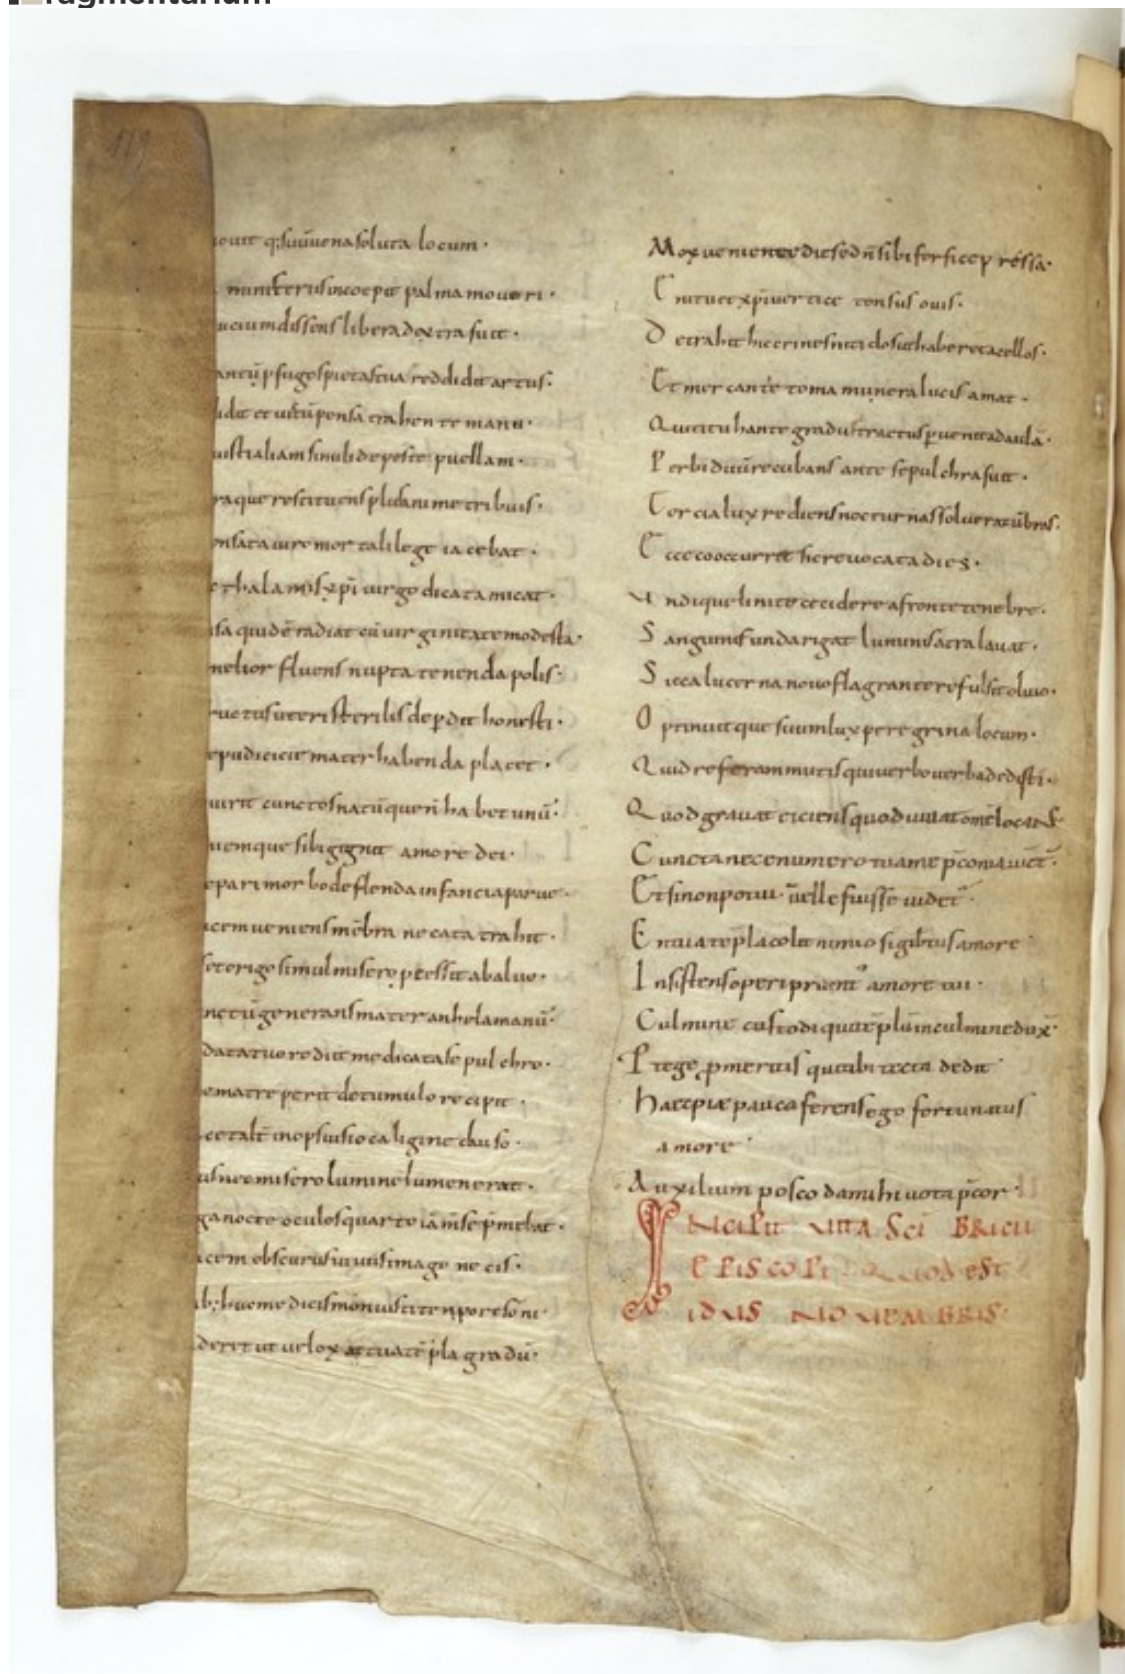 ragmentarium
119
ouit q; suū uena soluta locum ·
numferus incoepit palma moueri ·
ucium dissens libera dextra fuit ·
antū pfuge spietas tua reddidit artus ·
idit et uitū pensa trahente manu ·
aliam sinubi deposite puellam ·
raque restituens plus animę tribuis ·
onsata uiro mortali lege iacebat ·
thalamis xpī uirgo dicata micat ·
sa quidē radiat cū uirginitate modesta ·
melior fluens nupta tenenda polis ·
ructus uteri sterilis depdit honesti ·
epudicicie mater habenda placet ·
uirit cunctos natū quem habet unū ·
uemque sibi gignit amore dei ·
epari morbo deflenda infancia paruo ·
cem ueniens mēbra necata trahit ·
et origo simul misero pcessit ab aluo ·
nctū generans mater anhela manū ·
data tuo redit medicata sepulchro ·
e matre perit de tumulo recipit ·
ce talē inops uiso caligine clauso ·
us nec misero lumine lumen erat ·
ga nocte oculos quarto iā mse pmebat ·
acem obscurus uiuus imago necis ·
b; huic medicis monuisti tenpore somni
derit ut uelox at tua tēpla gradū ·
Mox ueniente die sed n̄ sibi forfice pressa ·
Enituit xpī uertice tonsus ouis ·
Detrahit hic crines inti dosit habere tacellos ·
Et mercante coma munera lucis amat ·
Qui titubante gradu tractus puenit ad aulā ·
Per biduū recubans ante sepulchra fuit ·
Tercia lux rediens nocturnas solueret ūbras ·
Ecce cooccurrit here uocata dies ·
Undique limite cecidere a fronte tenebre ·
Sanguinis unda rigat lumina sacra lauat ·
Sicca lucerna nouo flagrante refulsit oliuo ·
Optinuitque suum lux peregrina locum ·
Quid referam mutis qui uerbo uerba dedisti ·
Quod grauat eiciens quod iuuat omē locas ·
Cuncta nec enumero tua me pcomia uict ·
Et si non potui · uelle fuisse uidet
En tua tēpla colit nimio sigibtus amore
Insistens operi prient amore tui ·
Culmine custodi qui tēplū in culmine dux
Ptege pmeritis qui tibi tecta dedit
Haec pie pauca ferens ego fortunatus
amore
Auxilium posco da mihi uota pcor ·
INCIPIT UITA SCI BRICII
EPISCOPI QUOD EST
IDUS NOUEMBRIS ·